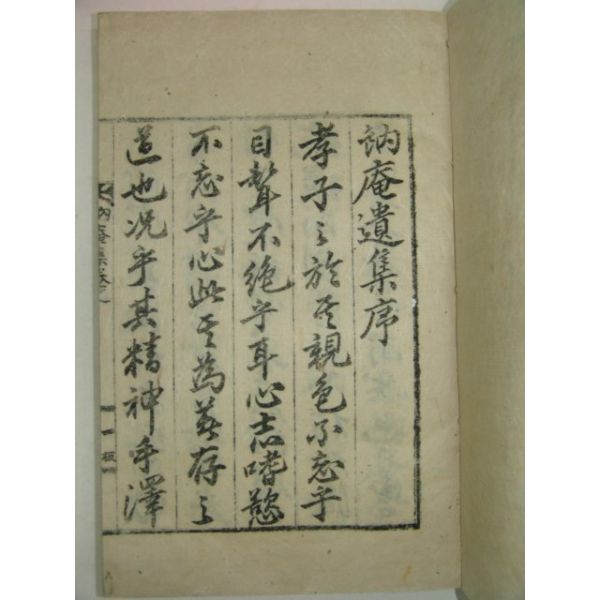 訥庵遺集序
孝子之於其親色不忘乎
目聲不絶乎耳心志嗜慾
不忘乎心此其為著存之
道也况乎其精神手澤
訥庵集卷之
一板